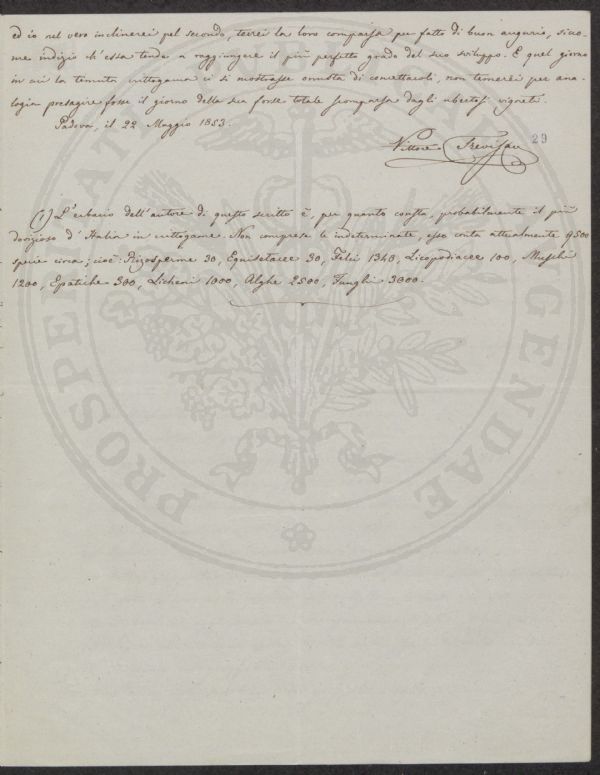 ed io nel vero inclinerei pel secondo, terrei la loro comparsa per fatto di buon augurio, sicco-
me indizio ch'essa tenda a raggiungere il più perfetto grado del suo sviluppo. E quel giorno
in cui la temuta crittogama ci si mostrasse onusta di concettacoli, non temerei per ana-
logia presagire fosse il giorno della sua forse totale scomparsa dagli ubertosi vigneti.
Padova, il 22 Maggio 1853.
29
Vittore Trevisan
(1) L'erbario dell'autore di questo scritto è, per quanto consta, probabilmente il più
dovizioso d'Italia in crittogame. Non comprese le indeterminate, esso conta attualmente 9500
specie circa; cioè: Rizosperme 30, Equisetacee 30, Felci 1340, Licopodiacee 100, Muschi
1200, Epatiche 300, Licheni 1000, Alghe 2500, Funghi 3000.
PROSPERITATI PUBLICAE AUGENDAE